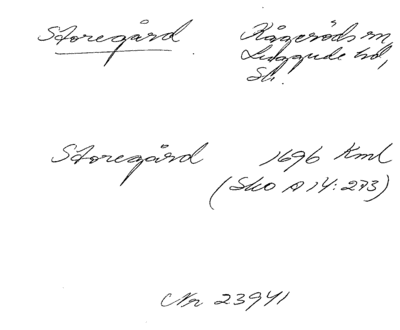 Storegård Kågeröds sn,
Luggude hd,
Sk.
Storegård 1696 Kml
(Sko A 14:273)
Nr 23941